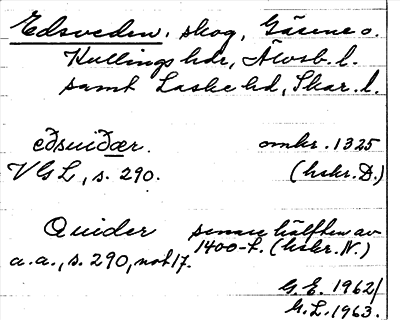 Edsveden. skog, Gäsene o.
Kullings hdr, Älvsb. l.
samt Laske hd, Skar. l.
eðsuiðær. omkr. 1325
VGL, s. 290. (hskr. D.)
Quider senare hälften av
1400-t. (hskr. N.)
a.a., s. 290, not 17.
G.E. 1962/
G.L. 1963.